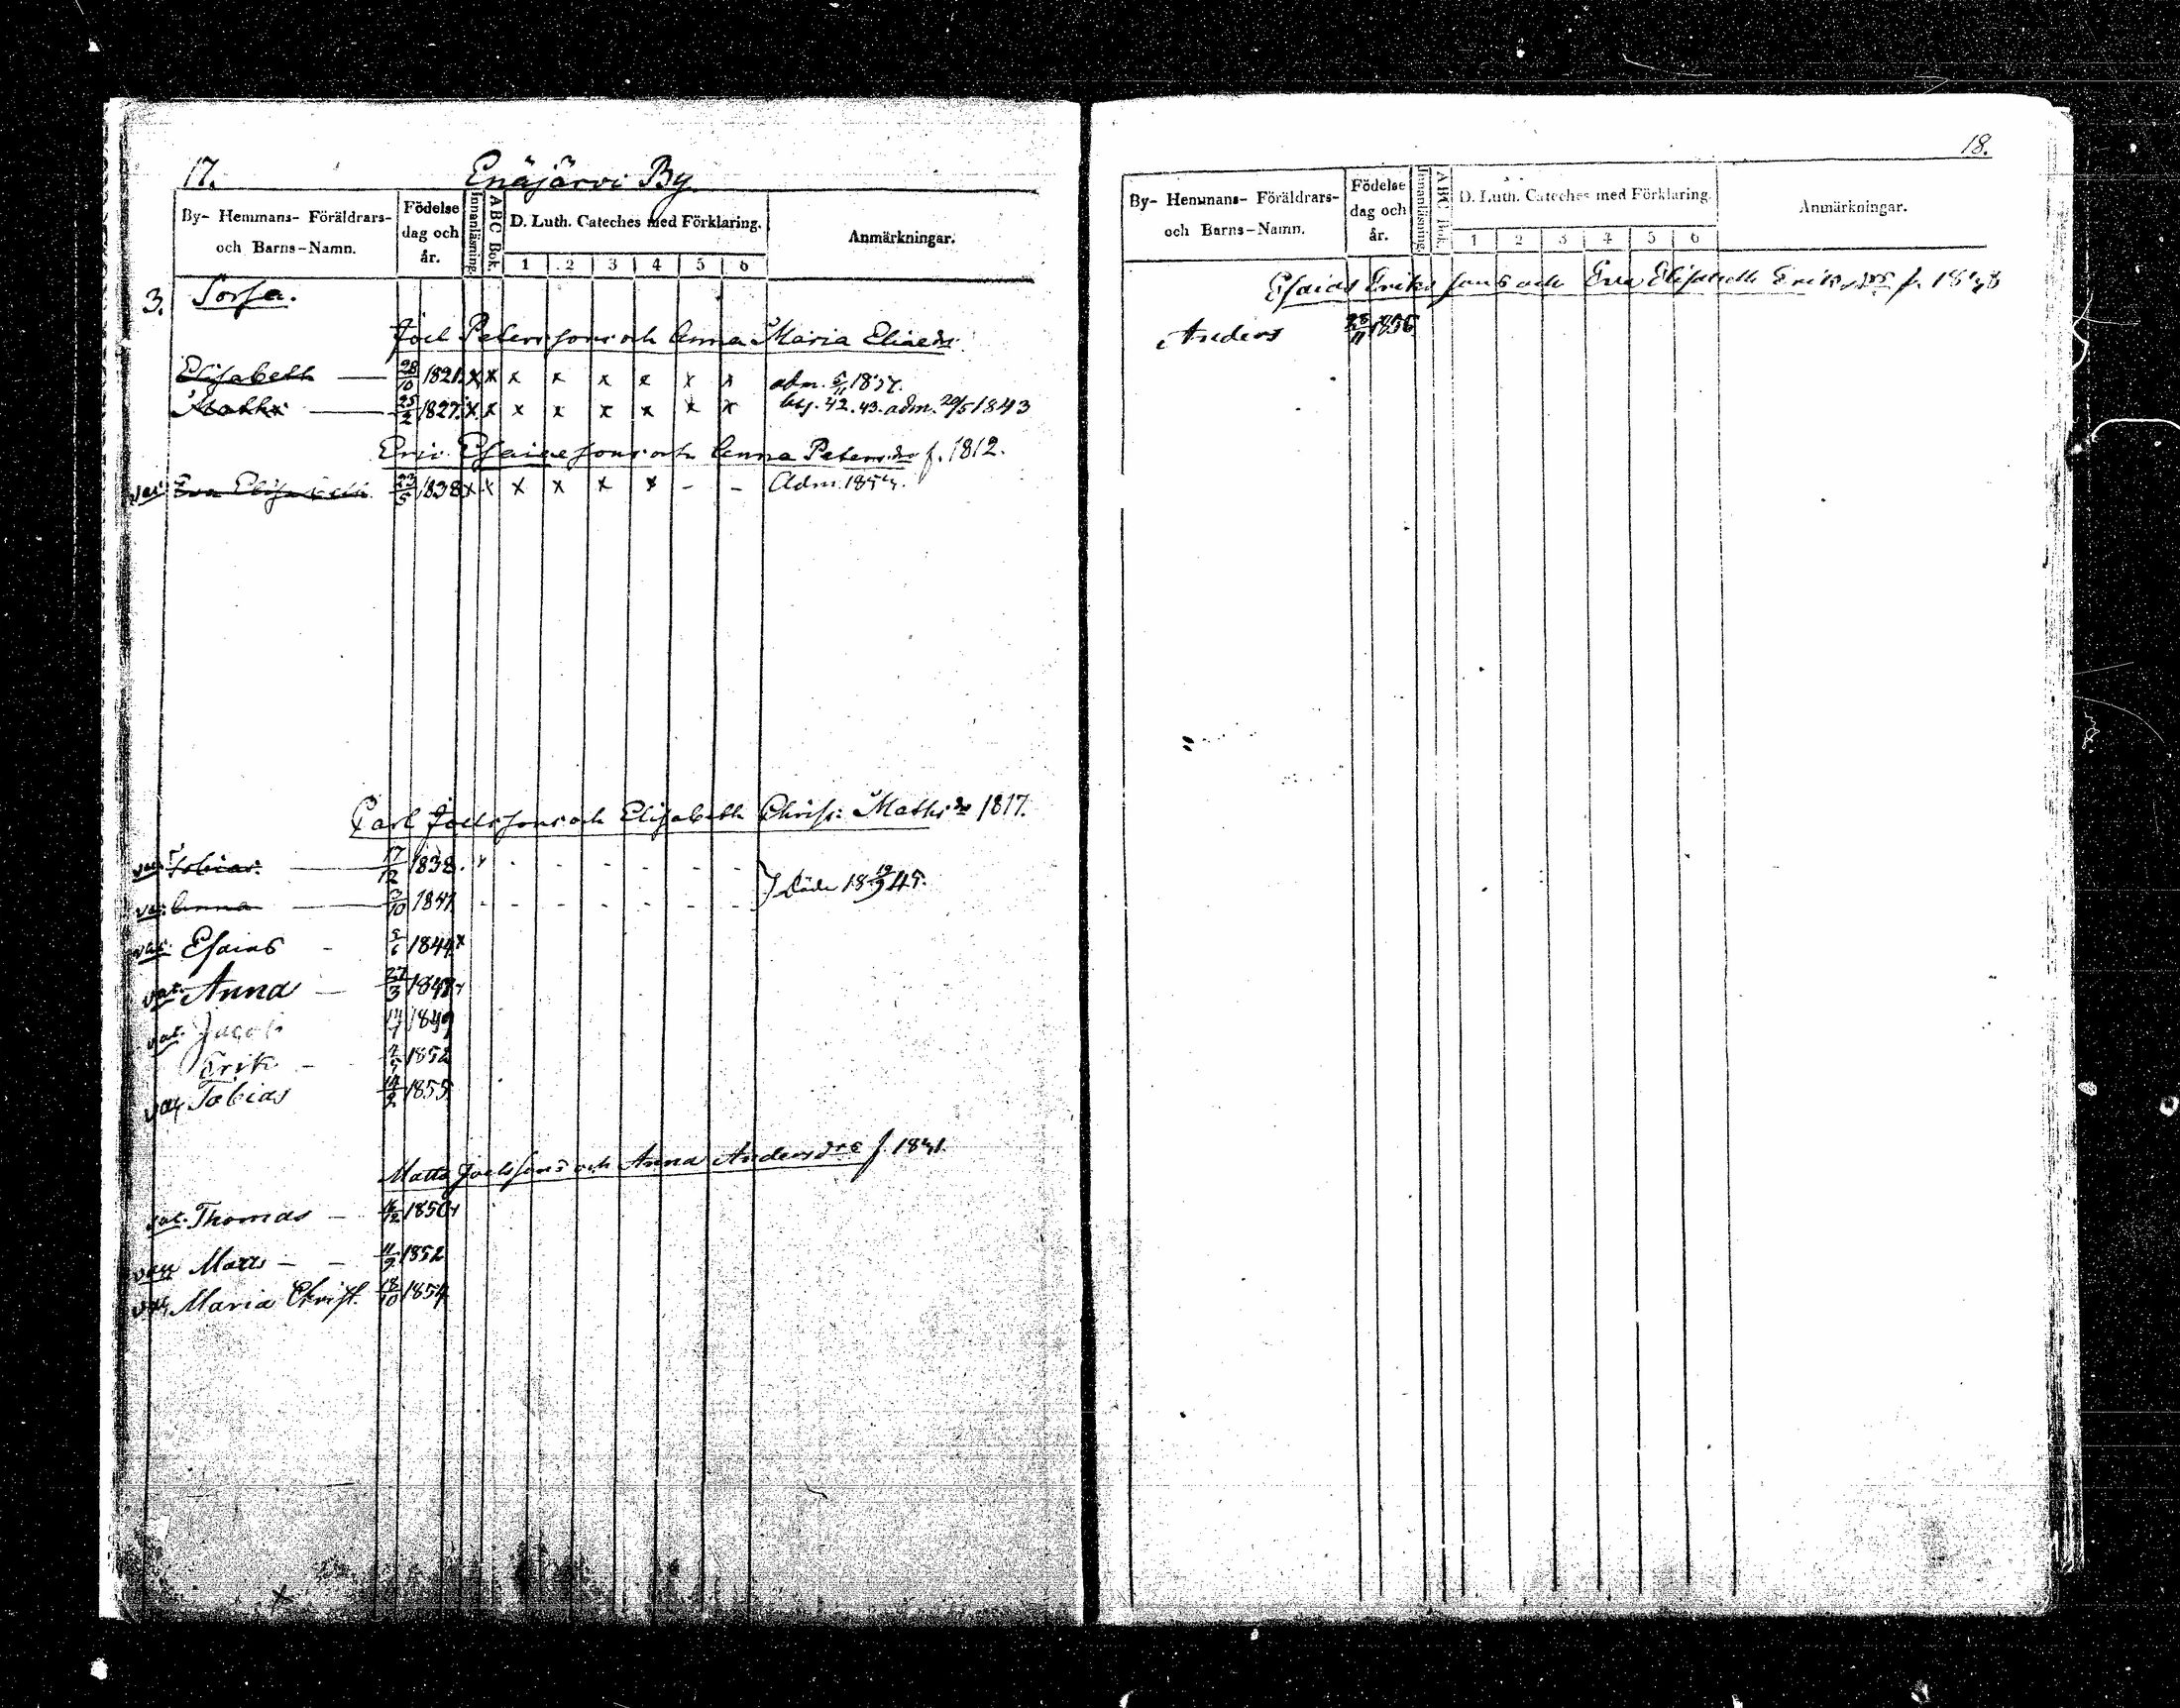 17.
Enäjärvi By
By- Hemmans- Föräldrars- och Barns-Namn.
Födelse dag och år.
Innanläsning.
ABC Bok.
D. Luth. Cateches med Förklaring.
1 2 3 4 5 6
Anmärkningar.
3. Sorsa.
Joel Peterssons och Anna Maria Eliaedr
Elisabeth 28/10 1821. x x x x x x x x adm.
Matts 25/2 1827. x x x x x x x x 42. 43. adm. 20/5 1843
Eric Esaiaesons och Anna Petersdr f. 1812.
vac. Eva Elisabeth 23/5 1838 x x x x x x - - Adm.
Carl Joelssons och Elisabeth Christ: Mathsdr 1817.
vac. Tobias. 17/12 1838. x - - - - - - -
vac. Anna 3/10 1841 - - - - - - - -
} Döde 18 19/9 45.
vac. Esaias - 5/6 1844 x
vac. Anna - 27/3 1847
vac. Jacob 14/7 1849
Erik - 2/5 1852
vac Tobias 14/2 1855
Matts Joelssons och Anna Andersdrs f.
vac. Thomas - /12 1850
vacc Matts - - 11/9 1852
vac Maria Christ. 18/10 1854
18.
By- Hemmans- Föräldrars- och Barns-Namn.
Födelse dag och år.
Innanläsning.
ABC Bok.
D. Luth. Cateches med Förklaring.
1 2 3 4 5 6
Anmärkningar.
Esaias Eriks sons och Eva Elisabeth Eriksdrs f.
Anders 28/11 1856